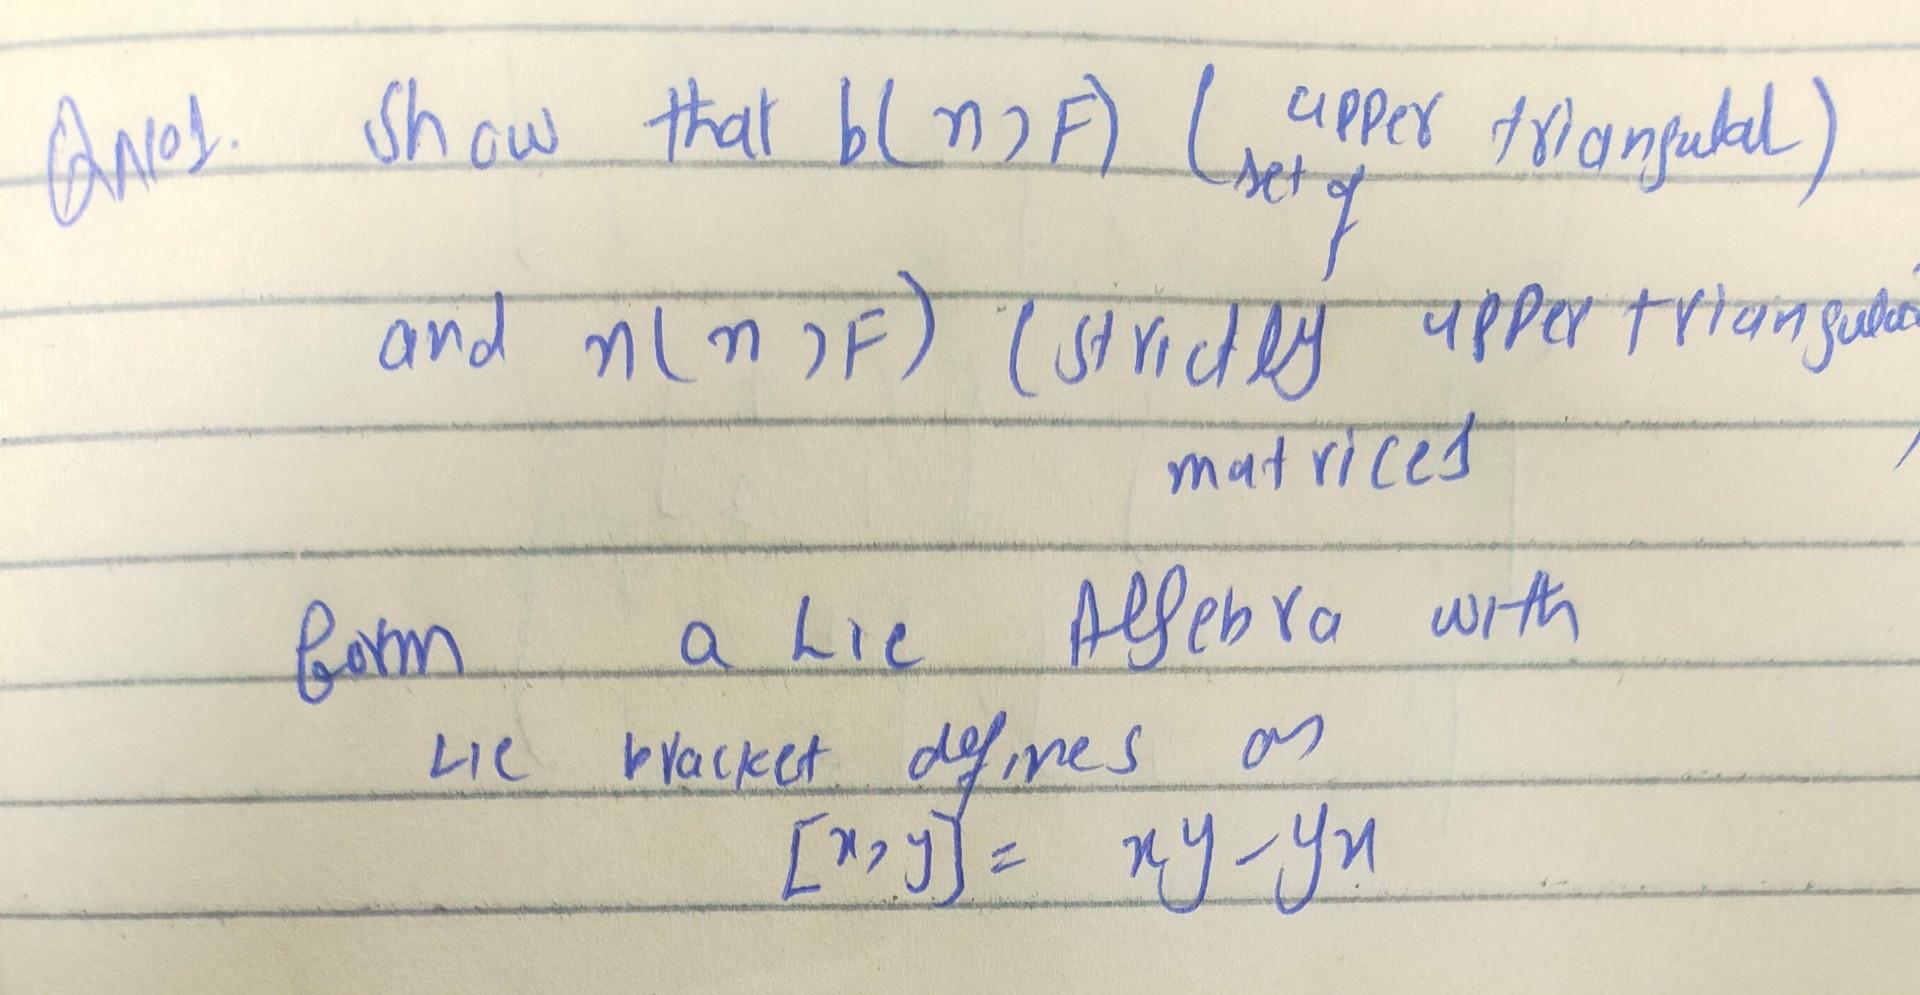 QNo1. Show that b(n,F) (set of upper triangular)
and n(n,F) (strictly upper triangular
matrices)
form a Lie Algebra with
Lie bracket defines as
[x,y] = xy-yx